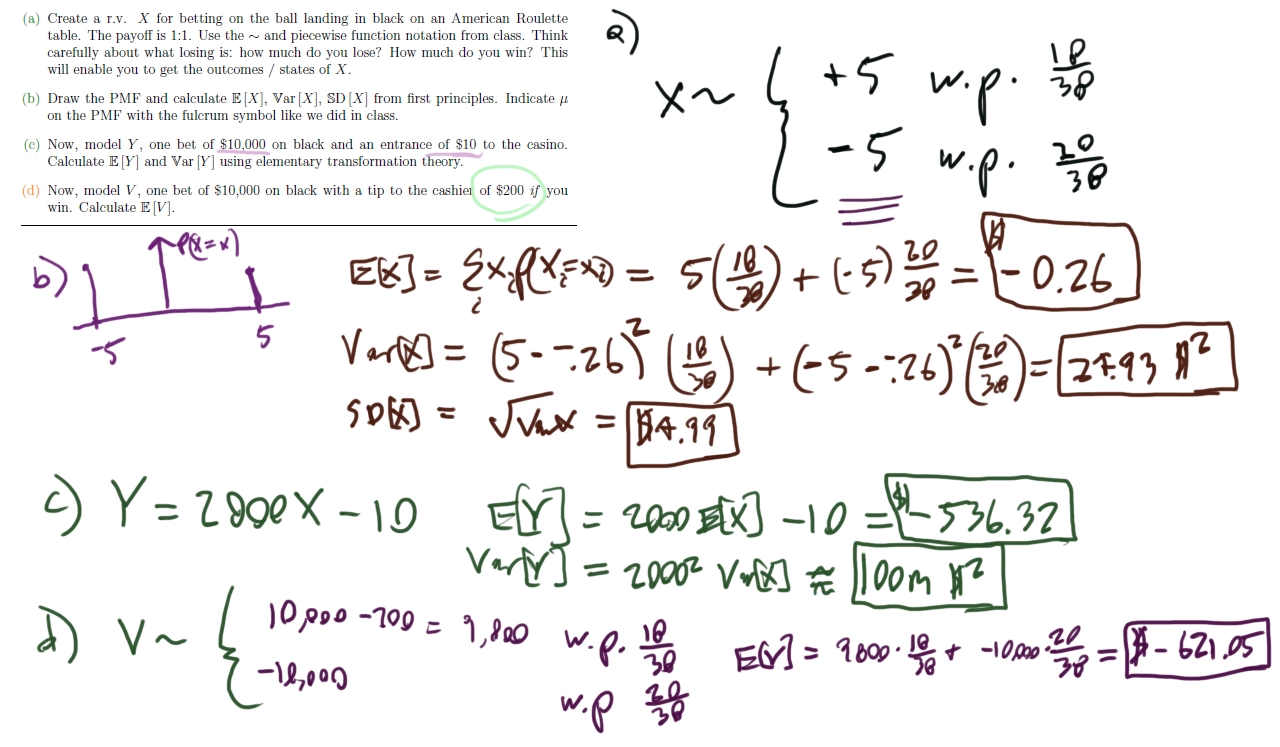 (a) Create a r.v. X for betting on the ball landing in black on an American Roulette
table. The payoff is 1:1. Use the ∼ and piecewise function notation from class. Think
carefully about what losing is: how much do you lose? How much do you win? This
will enable you to get the outcomes / states of X.
(b) Draw the PMF and calculate 𝔼[X], 𝕍ar[X], 𝕊D[X] from first principles. Indicate μ
on the PMF with the fulcrum symbol like we did in class.
(c) Now, model Y, one bet of $10,000 on black and an entrance of $10 to the casino.
Calculate 𝔼[Y] and 𝕍ar[Y] using elementary transformation theory.
(d) Now, model V, one bet of $10,000 on black with a tip to the cashier of $200 if you
win. Calculate 𝔼[V].
a)
X ~ { +5 w.p. 18/38
-5 w.p. 20/38
b) P(X=x)
-5 5
E[X] = Σ_i x_i P(X_i=x_i) = 5(18/38) + (-5) 20/38 = $ -0.26
Var[X] = (5--.26)² (18/38) + (-5--.26)² (20/38) = 24.93 $²
SD[X] = √Var X = $4.99
c) Y = 2000X - 10 E[Y] = 2000 E[X] - 10 = $ -536.32
Var[Y] = 2000² Var[X] ≈ 100m $²
d) V ~ { 10,000 - 200 = 9,800 w.p. 18/38
-10,000 w.p 20/38
E[V] = 9800 · 18/38 + -10,000 · 20/38 = $ -621.05